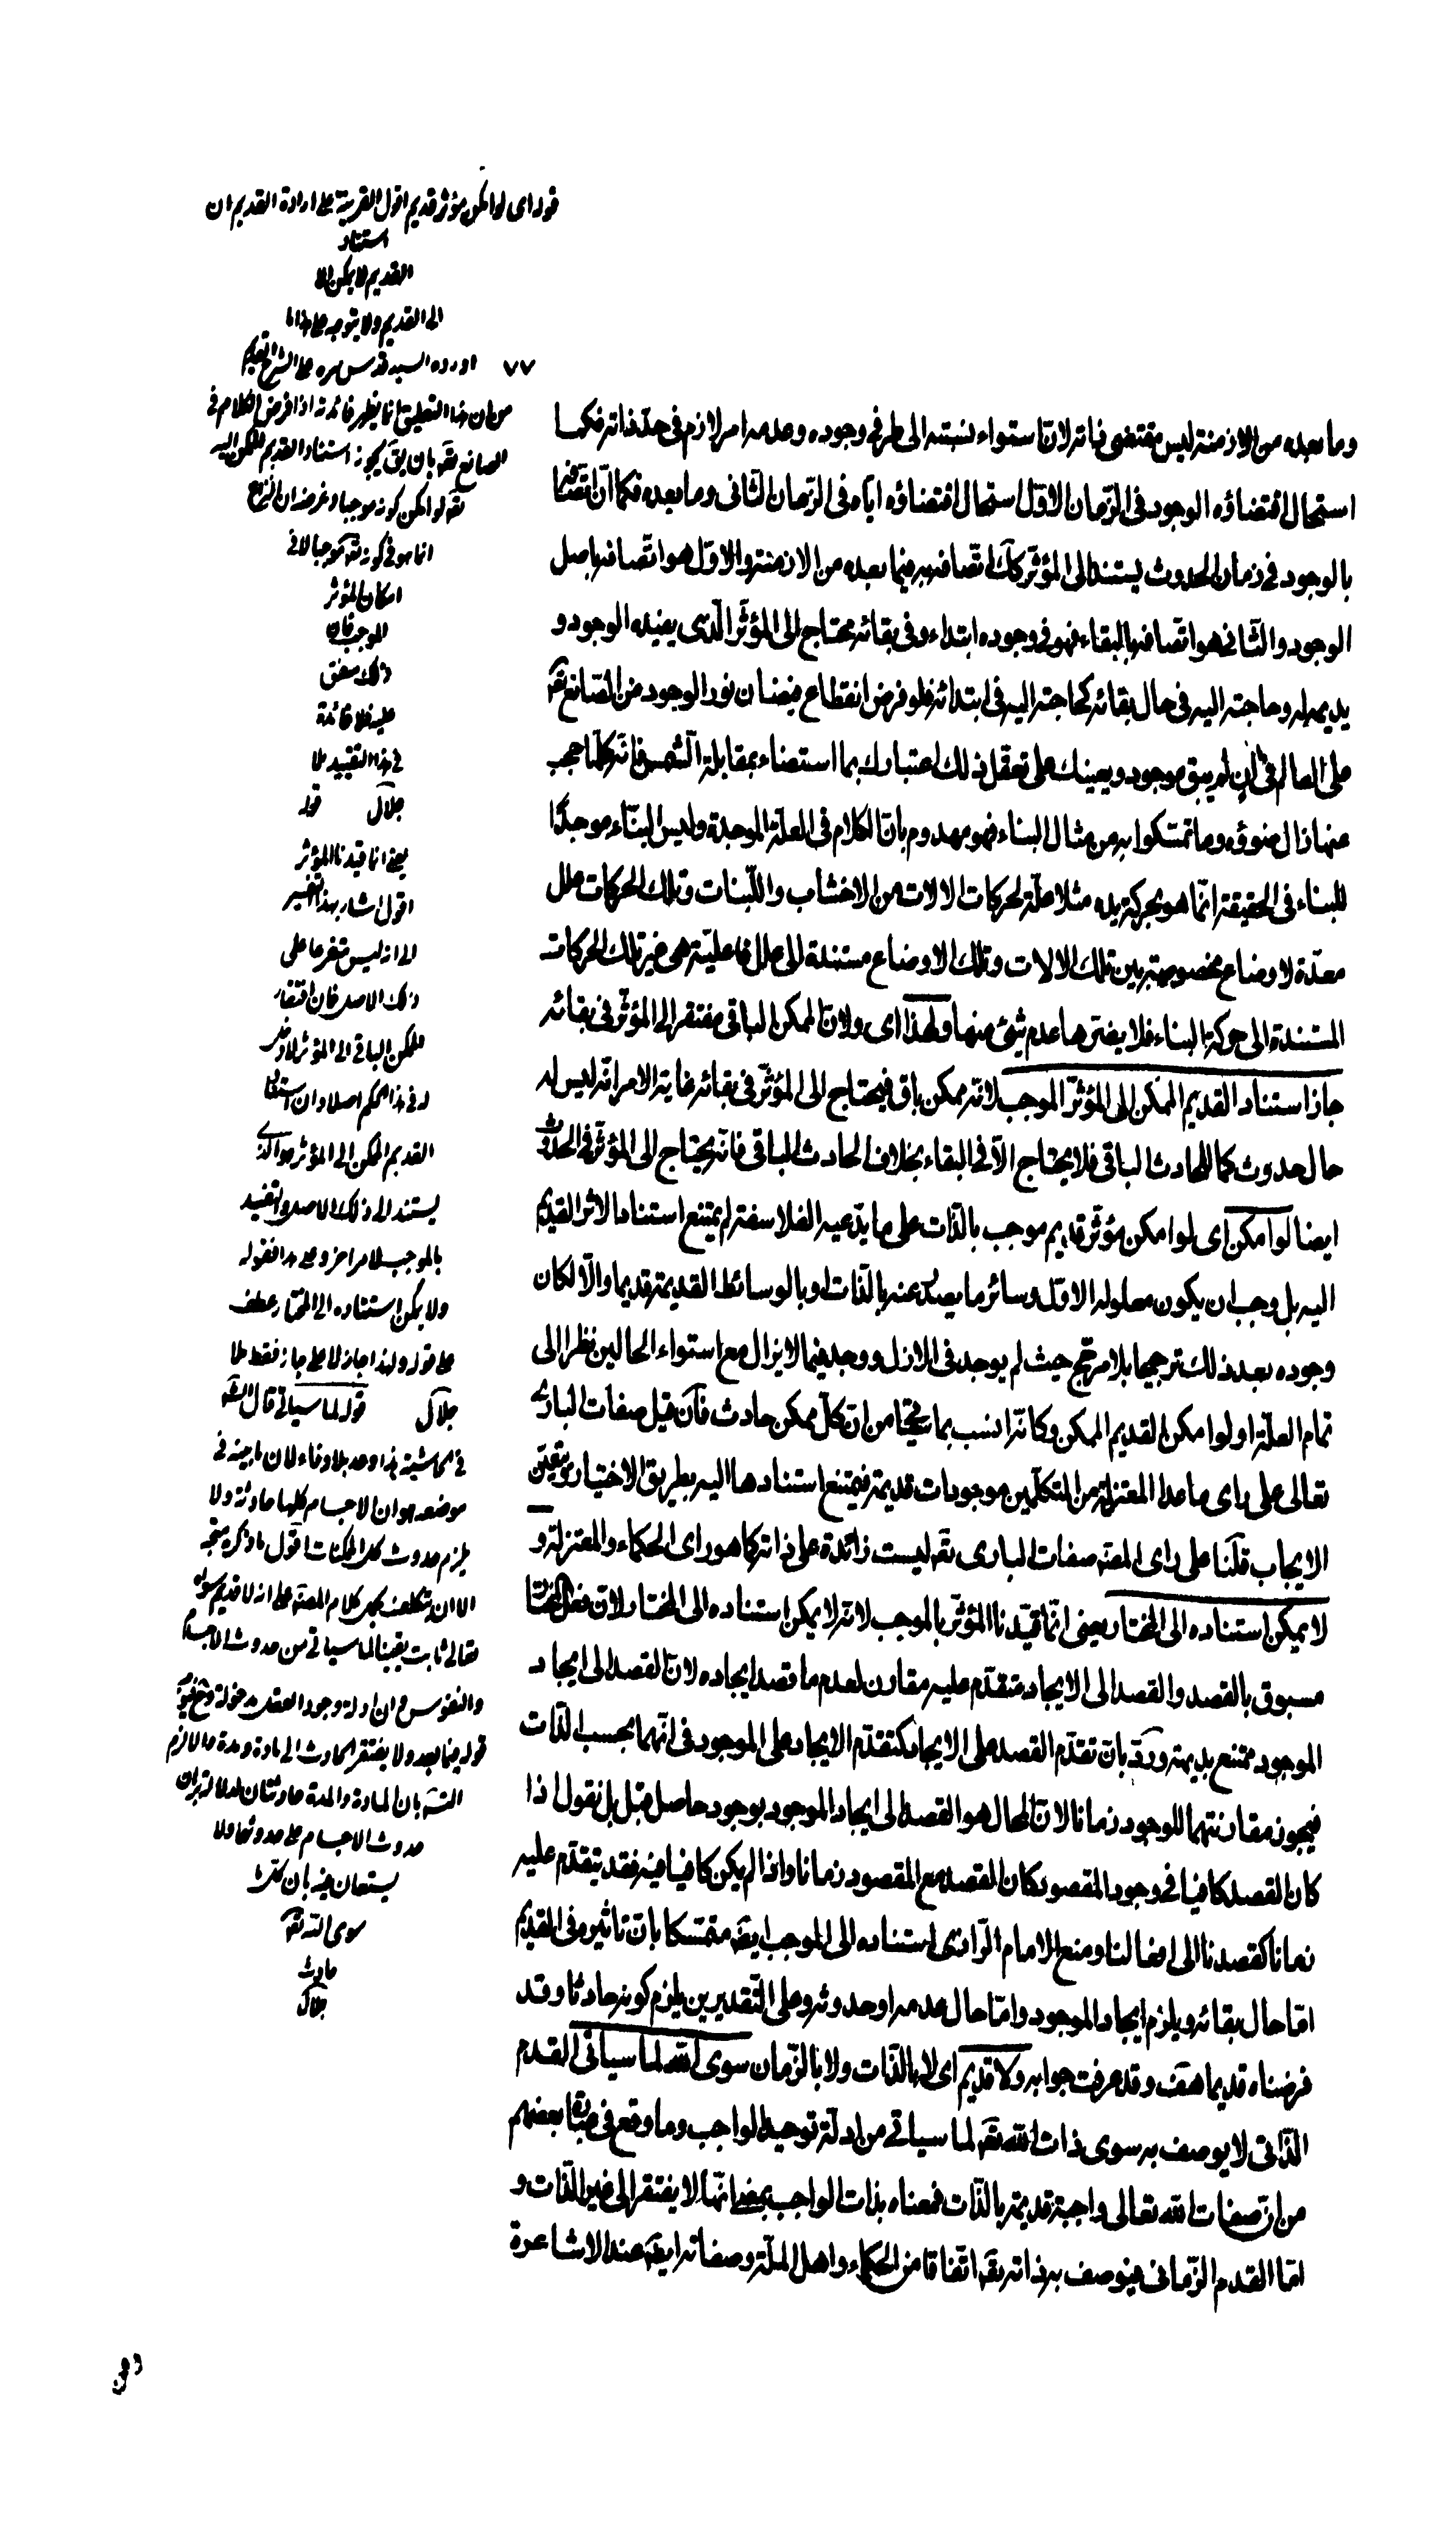 وما بعده من الازمنة ليس مقتضى ذاته لان استواء نسبته الى طرفي وجوده وعدمه امر لازم فى حدّ ذاته فكما
استحال اقتضاؤه الوجود فى الزّمان الاوّل استحال اقتضاؤه ايّاه فى الزّمان الثّانى وما بعده فكما انّ اتّصافها
بالوجود فى زمان الحدوث يستند الى المؤثّر كك اتّصافه به فيما بعده من الازمنة والاوّل هو اتّصافه باصل
الوجود والثّانى هو اتّصافه بالبقاء فهو فى وجوده ابتداء وفى بقائه محتاج الى المؤثّر الّذى يفيده الوجود و
يديمه له وحاجته اليه فى حال بقائه كحاجته اليه فى ابتدائه فلو فرض انقطاع فيضان نور الوجود من الصّانع تعه
على العالم فى آن لم يبق موجود ويعينك على تعقّل ذلك اعتبارك بما استضاء بمقابلة الشّمس فانّه كلّما حجب
عنها زال ضوؤه وما تمسّكوا به من مثال البناء فهو مهدوم بانّ الكلام فى العلّة الموجدة وليس البنّاء موجدًا
للبناء فى الحقيقة انّما هو بحركة يده مثلا علّة لحركات الالات من الاخشاب واللّبنات وتلك الحركات علل
معدّة لاوضاع مخصوصة بين تلك الالات وتلك الاوضاع مستندة الى علل فاعليّة هى غير تلك الحركات
المستندة الى حركة البناء فلا يضرّها عدم شئ منها ولهذا اى ولانّ الممكن الباقى مفتقر الى المؤثّر فى بقائه
جاز استناد القديم الممكن الى المؤثّر الموجب لانّه ممكن باق فيحتاج الى المؤثّر فى بقائه غاية الامر انّه ليس له
حال حدوث كما للحادث الباقى فلا يحتاج الّا فى البقاء بخلاف الحادث الباقى فانّه يحتاج الى المؤثّر فى الحدوث
ايضا لو امكن اى لو امكن مؤثّر قديم موجب بالذّات على ما يدّعيه الفلاسفة لم يمتنع استناد الاثر القديم
اليه بل وجب ان يكون معلوله الاوّل وسائر ما يصدر عنه بالذّات او بالوسائط القديمة قديما والّا لكان
وجوده بعد ذلك ترجيحا بلا مرجّح حيث لم يوجد فى الازل ووجد فيما لايزال مع استواء الحالين نظرا الى
تمام العلّة او لو امكن القديم الممكن وكانّه انسب بما سيجئ من انّ كلّ ممكن حادث فان قيل صفات البارئ
تعالى على راى ما عدا المعتزلة من المتكلّمين موجودات قديمة فيمتنع استنادها اليه بطريق الاختيار ويتعيّن
الايجاب قلنا على راى المصنّف صفات البارى تعه ليست زائدة على ذاته كما هو راى الحكماء والمعتزلة و
لا يمكن استناده الى المختار يعنى انّما قيّدنا المؤثّر بالموجب لانّه لا يمكن استناده الى المختار لانّ فعل المختار
مسبوق بالقصد والقصد الى الايجاد متقدّم عليه مقارن لعدم ما قصد ايجاده لانّ القصد الى ايجاد
الموجود ممتنع بديهة وردّ بانّ تقدّم القصد على الايجاد كتقدّم الايجاد على الموجود فى انّهما بحسب الذّات
فيجوز مقارنتهما للوجود زمانا لانّ المحال هو القصد الى ايجاد الموجود بوجود حاصل قبل بل نقول اذا
كان القصد كافيا فى وجود المقصود كان القصد مع المقصود زمانا واذا لم يكن كافيا فيه فقد يتقدّم عليه
زمانا كقصدنا الى افعالنا ومنع الامام الرّازى استناده الى الموجب ايضه متمسّكا بانّ تاثيره فى القديم
امّا حال بقائه ويلزم ايجاد الموجود وامّا حال عدمه او حدوثه وعلى التّقديرين يلزم كونه حادثا وقد
فرضناه قديما هف وقد عرفت جوابه ولا قديم اى لا بالذّات ولا بالزّمان سوى الله لما سياتى القدم
الذّاتى لا يوصف به سوى ذات الله تعه لما سياتى من ادلّة توحيد الواجب وما وقع فى عبارة بعضهم
من انّ صفات الله تعالى واجبة قديمة بالذّات فمعناه بذات الواجب بمعنى انّها لا يفتقر الى غير الذّات و
امّا القدم الزّمانى فيوصف به ذاته تعه اتّفاقا من الحكماء واهل الملّة وصفاته ايضه عند الاشاعرة
قوله اى لو امكن مؤثر قديم اقول القرينة على ارادة القديم ان
استناد
القديم لا يمكن الا
الى القديم ولا يتوجه على هذا ما
اورده السيد قدس سره على الشرح القديم
٧٧
من ان هذا التعليق انما يظهر فائدته اذا فرض الكلام فى
الصانع تعه بان يق يجوز استناد القديم الممكن اليه
تعه لو امكن كونه موجبا وغرضه ان النزاع
انما هو فى كونه تعه موجبا لا فى
امكان المؤثر
الموجب فان
ذلك متفق
عليه فلا فائدة
فى هذا التقييد ملا
جلال قوله
يعنى انما قيدنا المؤثر
اقول اشار بهذا التفسير
الى انه ليس متفرعا على
ذلك الاصل فان افتقار
الممكن الباقى الى المؤثر لا دخل
له فى هذا الحكم اصلا وان استناد
القديم الممكن الى المؤثر هو الذى
يستند الى ذلك الاصل والتقييد
بالموجب لامر اخر وعلى هذا فقوله
ولا يمكن استناده الى المختار عطف
على قوله ولهذا جاز لا على جاز فقط ملا
جلال قوله لما سياتى قال الشه
فى الحاشية هذا وعد بلا وفاء لان ما بينه فى
موضعه هو ان الاجسام كلها حادثة ولا
يلزم حدوث كل الممكنات اقول ما ذكره متجه
الا ان يتكلف بحمل كلام المصنف على انه لا قديم سوى الله
تعالى ثابت يقينا لما سياتى من حدوث الاجسام
والنفوس وان ادلة وجود العقل مدخولة
قوله فيما بعد ولا يفتقر الحادث الى مادة ومدة والا لزم
التسه بان المادة والمدة حادثتان لدلالة برهان
حدوث الاجسام على حدوثها ولا
يستعان فيه بان كل ما
سوى الله تعه
حادث
جلال